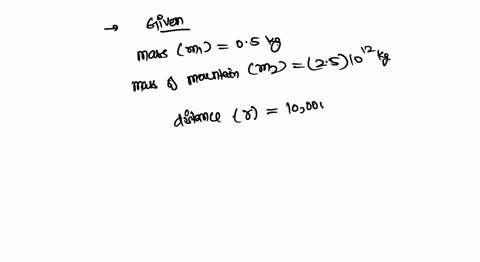 → Given
mass (m1) = 0.5 kg
mass of mountain (m2) = (2.5) 10^12 kg
distance (r) = 10,000